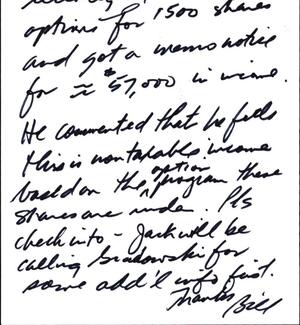 options for 1500 shares
and got a memo notice
for ≈ $57,000 in income.
He commented that he feels
this is nontaxable income
based on the option program these
shares are under. Pls
check into - Jack will be
calling for
some add'l info first.
Thanks
Bill